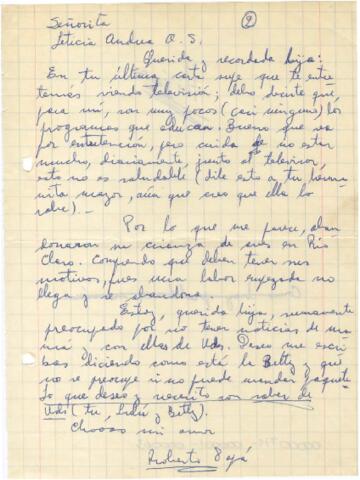 Señorita
②
Leticia Andrea O. S.
Querida y recordada hija:
En tu última carta supe que te entre
tenías viendo televisión; debo decirte que,
para mí, son muy pocos (casi ninguno) los
programas que educan. Bueno que vea
por entretención, pero cuida de no estar
mucho, diariamente, junto al televisor,
esto no es saludable (dile esto a tu herma
nita mayor, aún que creo que ella lo
sabe).-
Por lo que me parece, aban
donaron su crianza de aves en Río
Claro. Comprendo que deben tener sus
motivos, pues una labor empezada no
llega y se abandona.
Estoy, querida hija, sumamente
preocupado por no tener noticias de ma
má, con ellas de Uds. Deseo me escri
bas diciendo como está la Betty y que
no se preocupe si no puede mandar paquete.
Lo que deseo y necesito son saber de
Uds (tu, y Betty).
Chaoo mi amor
Roberto Papá